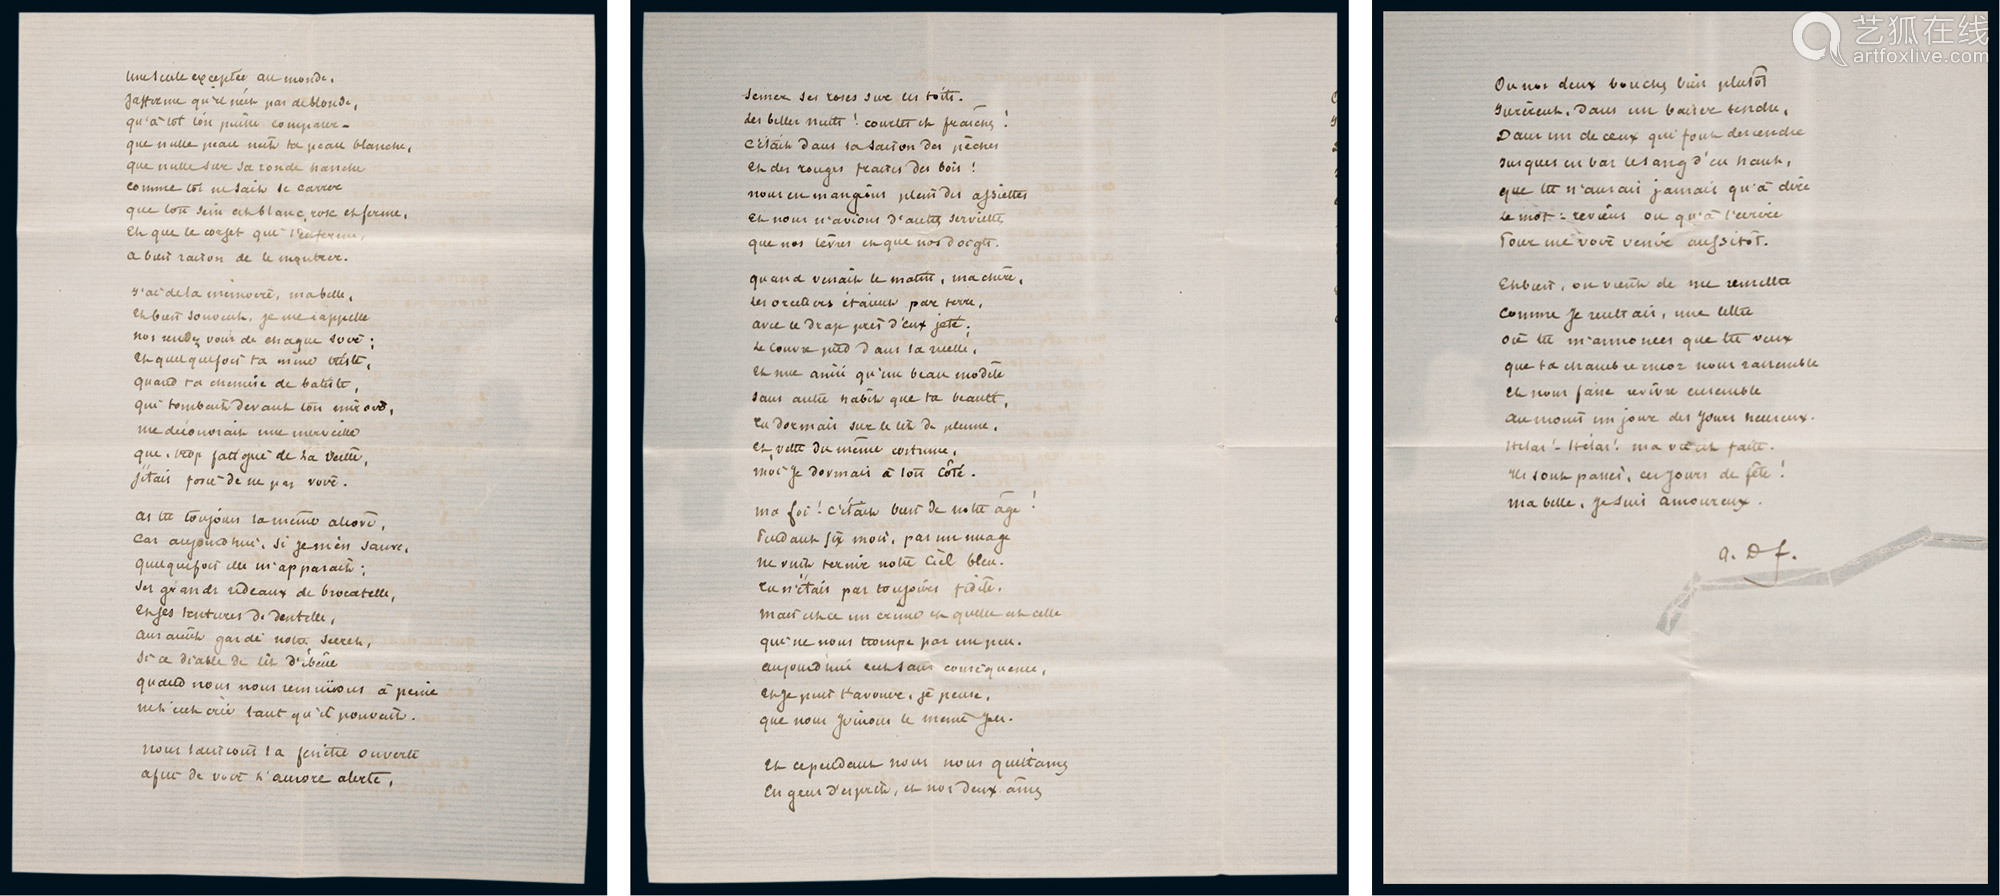 Une seule exceptée au monde,
J'affirme qu'il n'est pas de blonde,
qu'à toi l'on puisse comparer -
que nulle peau n'est ta peau blanche,
que nulle sur sa ronde hanche
comme toi ne sait se carrer
que ton sein est blanc, rose et ferme,
Et que le corset qui l'enferme,
a bien raison de le montrer.
J'ai de la mémoire, ma belle,
Et bien souvent, je me rappelle
nos rendez vous de chaque soir;
Et quelquefois ta mine triste,
quand ta chemise de batiste,
qui tombait devant ton miroir,
me découvrait une merveille
que, trop fatigué de la veille,
j'étais forcé de ne pas voir.
As tu toujours la même alcove,
Car aujourd'hui, si je m'en sauve,
quelquefois elle m'apparait;
Ses grands rideaux de brocatelle,
Et ses tentures de dentelle,
auraient gardé notre secret,
Si ce diable de lit d'ébène
quand nous nous remuions à peine
n'eut crié tant qu'il pouvait.
nous laissions la fenêtre ouverte
afin de voir l'aurore alerte,
semer ses roses sur les toits.
Les belles nuits! courtes et fraîches!
C'était dans la saison des pêches
Et des rouges fraises des bois!
nous en mangions plein des assiettes
Et nous n'avions d'autres serviettes
que nos lèvres et que nos doigts.
quand venait le matin, ma chère,
les oreillers étaient par terre,
avec le drap près d'eux jeté;
Le couvre pied dans la ruelle,
Et nue ainsi qu'un beau modèle
sans autre habit que ta beauté,
Tu dormais sur le lit de plume,
Et vêtu du même costume,
moi je dormais à ton côté.
ma foi! c'était bien de notre âge!
Pendant six mois, pas un nuage
ne vint ternir notre ciel bleu.
Tu n'étais pas toujours fidèle,
mais est-ce un crime et quelle est celle
qui ne nous trompe pas un peu.
aujourd'hui c'est sans conséquence,
Et je puis t'avouer, je pense,
que nous jouions le même jeu.
Et cependant nous nous quittâmes
En gens d'esprit, et nos deux âmes
Ou nos deux bouches bien plutôt
Jurèrent, dans un baiser tendre,
Dans un de ceux qui font descendre
Jusques en bas le sang d'en haut,
que tu n'aurais jamais qu'à dire
Le mot: reviens ou qu'à l'écrire
Pour me voir venir aussitôt.
Eh bien, on vient de me remettre
Comme je rentrais, une lettre
où tu m'annonces que tu veux
que ta chambre encor nous rassemble
Et nous faire revivre ensemble
au moins un jour des jours heureux.
Hélas! - Hélas! ma vie est faite.
Ils sont passés, ces jours de fête!
ma belle, je suis amoureux.
a. Df.
艺狐在线
artfoxlive.com